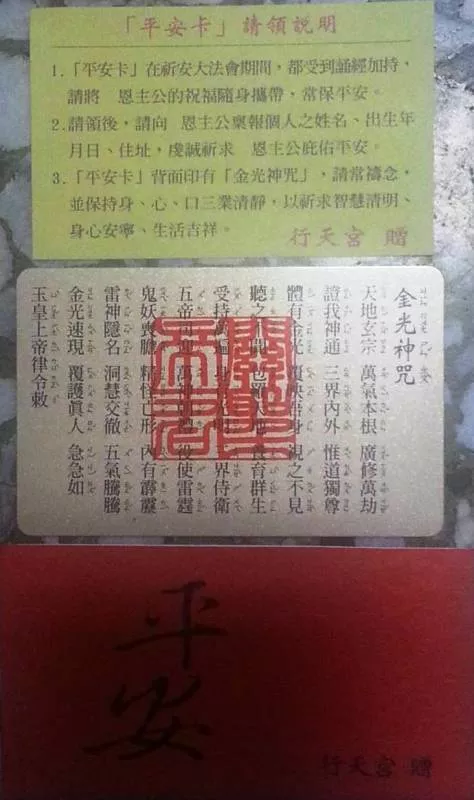 「平安卡」請領說明
1.「平安卡」在祈安大法會期間，都受到誦經加持，
請將　恩主公的祝福隨身攜帶，常保平安。
2.請領後，請向　恩主公稟報個人之姓名、出生年
月日、住址，虔誠祈求　恩主公庇佑平安。
3.「平安卡」背面印有「金光神咒」，請常禱念，
並保持身、心、口三業清靜，以祈求智慧清明、
身心安寧、生活吉祥。
行天宮 贈
金光神咒
天地玄宗 萬氣本根 廣修萬劫
證我神通 三界內外 惟道獨尊
體有金光 覆映吾身 視之不見
聽之不聞 包羅天地 養育群生
受持萬遍 身有光明 三界侍衛
五帝司迎 萬神朝禮 役使雷霆
鬼妖喪膽 精怪亡形 內有霹靂
雷神隱名 洞慧交徹 五氣騰騰
金光速現 覆護眞人 急急如
玉皇上帝律令敕
平安
行天宮 贈